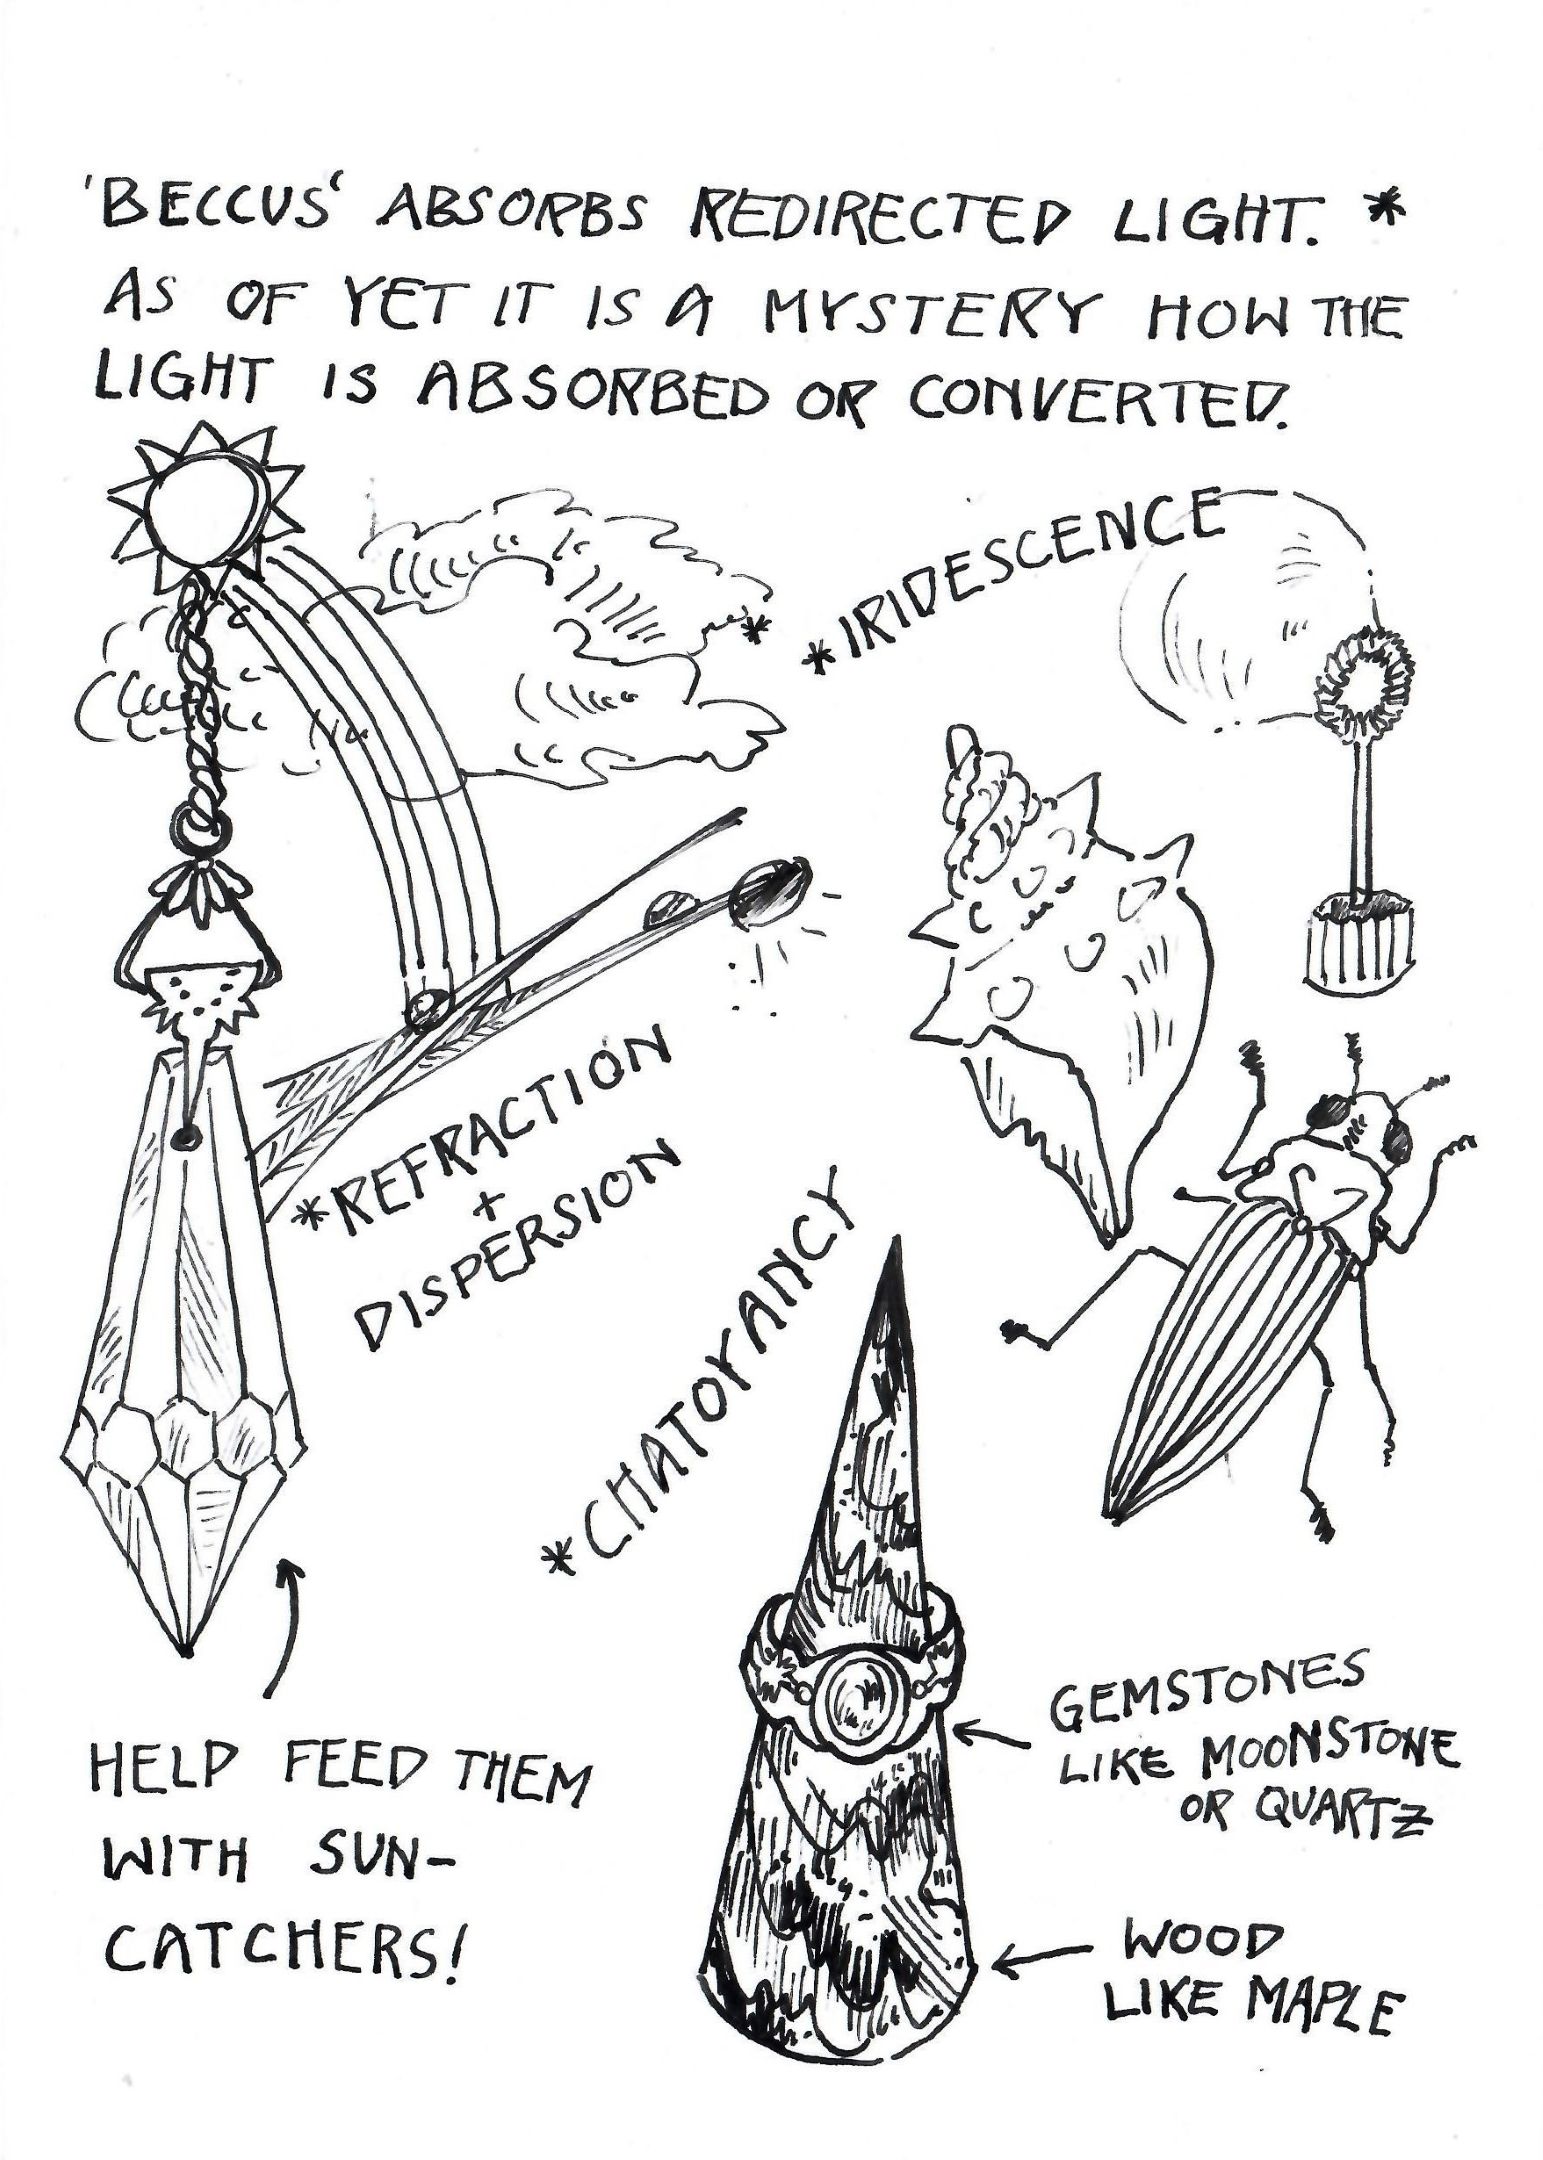 'BECCUS' ABSORBS REDIRECTED LIGHT. *
AS OF YET IT IS A MYSTERY HOW THE
LIGHT IS ABSORBED OR CONVERTED.
*
*IRIDESCENCE
*REFRACTION
+
DISPERSION
*CHATOYANCY
HELP FEED THEM
WITH SUN-
CATCHERS!
GEMSTONES
LIKE MOONSTONE
OR QUARTZ
WOOD
LIKE MAPLE